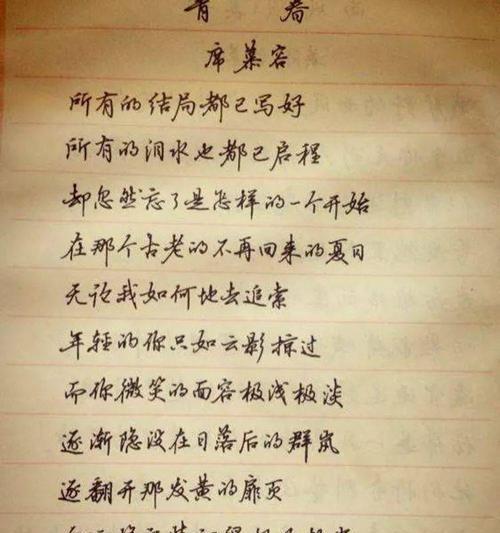 青春
席慕容
所有的结局都已写好
所有的泪水也都已启程
却忽然忘了是怎样的一个开始
在那个古老的不再回来的夏日
无论我如何地去追索
年轻的你只如云影掠过
而你微笑的面容极浅极淡
逐渐隐没在日落后的群岚
遂翻开那发黄的扉页